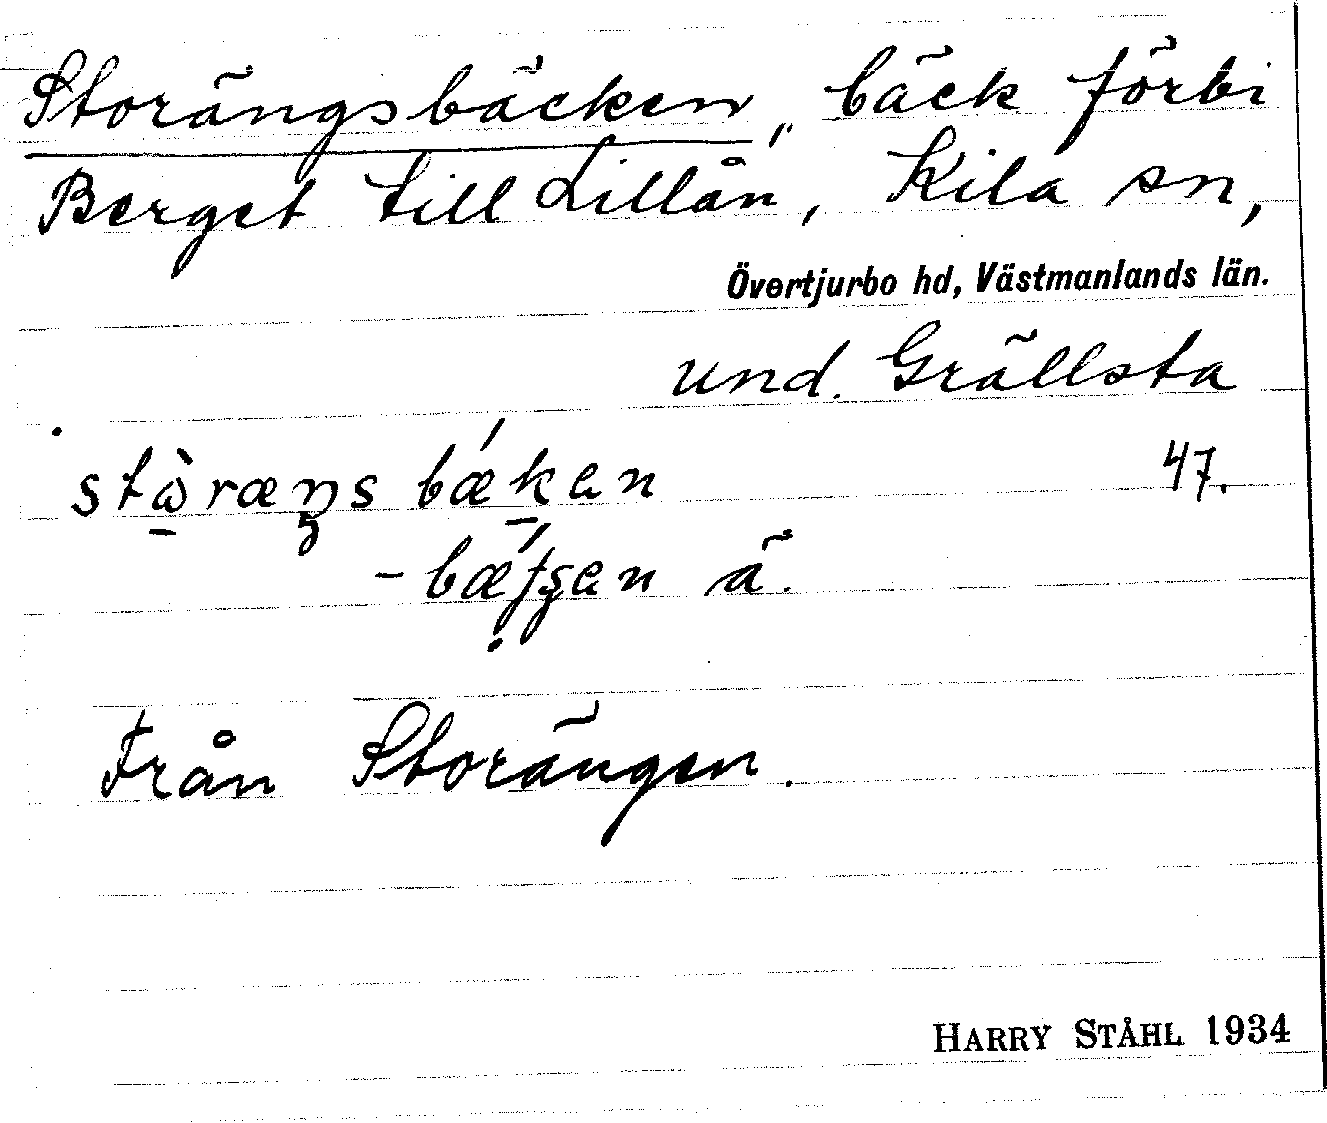 Storängsbäcken, bäck förbi
Berget till Lillån, Kila sn,
Övertjurbo hd, Västmanlands län.
und. Grällsta
stὼræŋs bǽkan 47.
- bǽtʂan ä.
Från Storängen.
HARRY STÅHL 1934